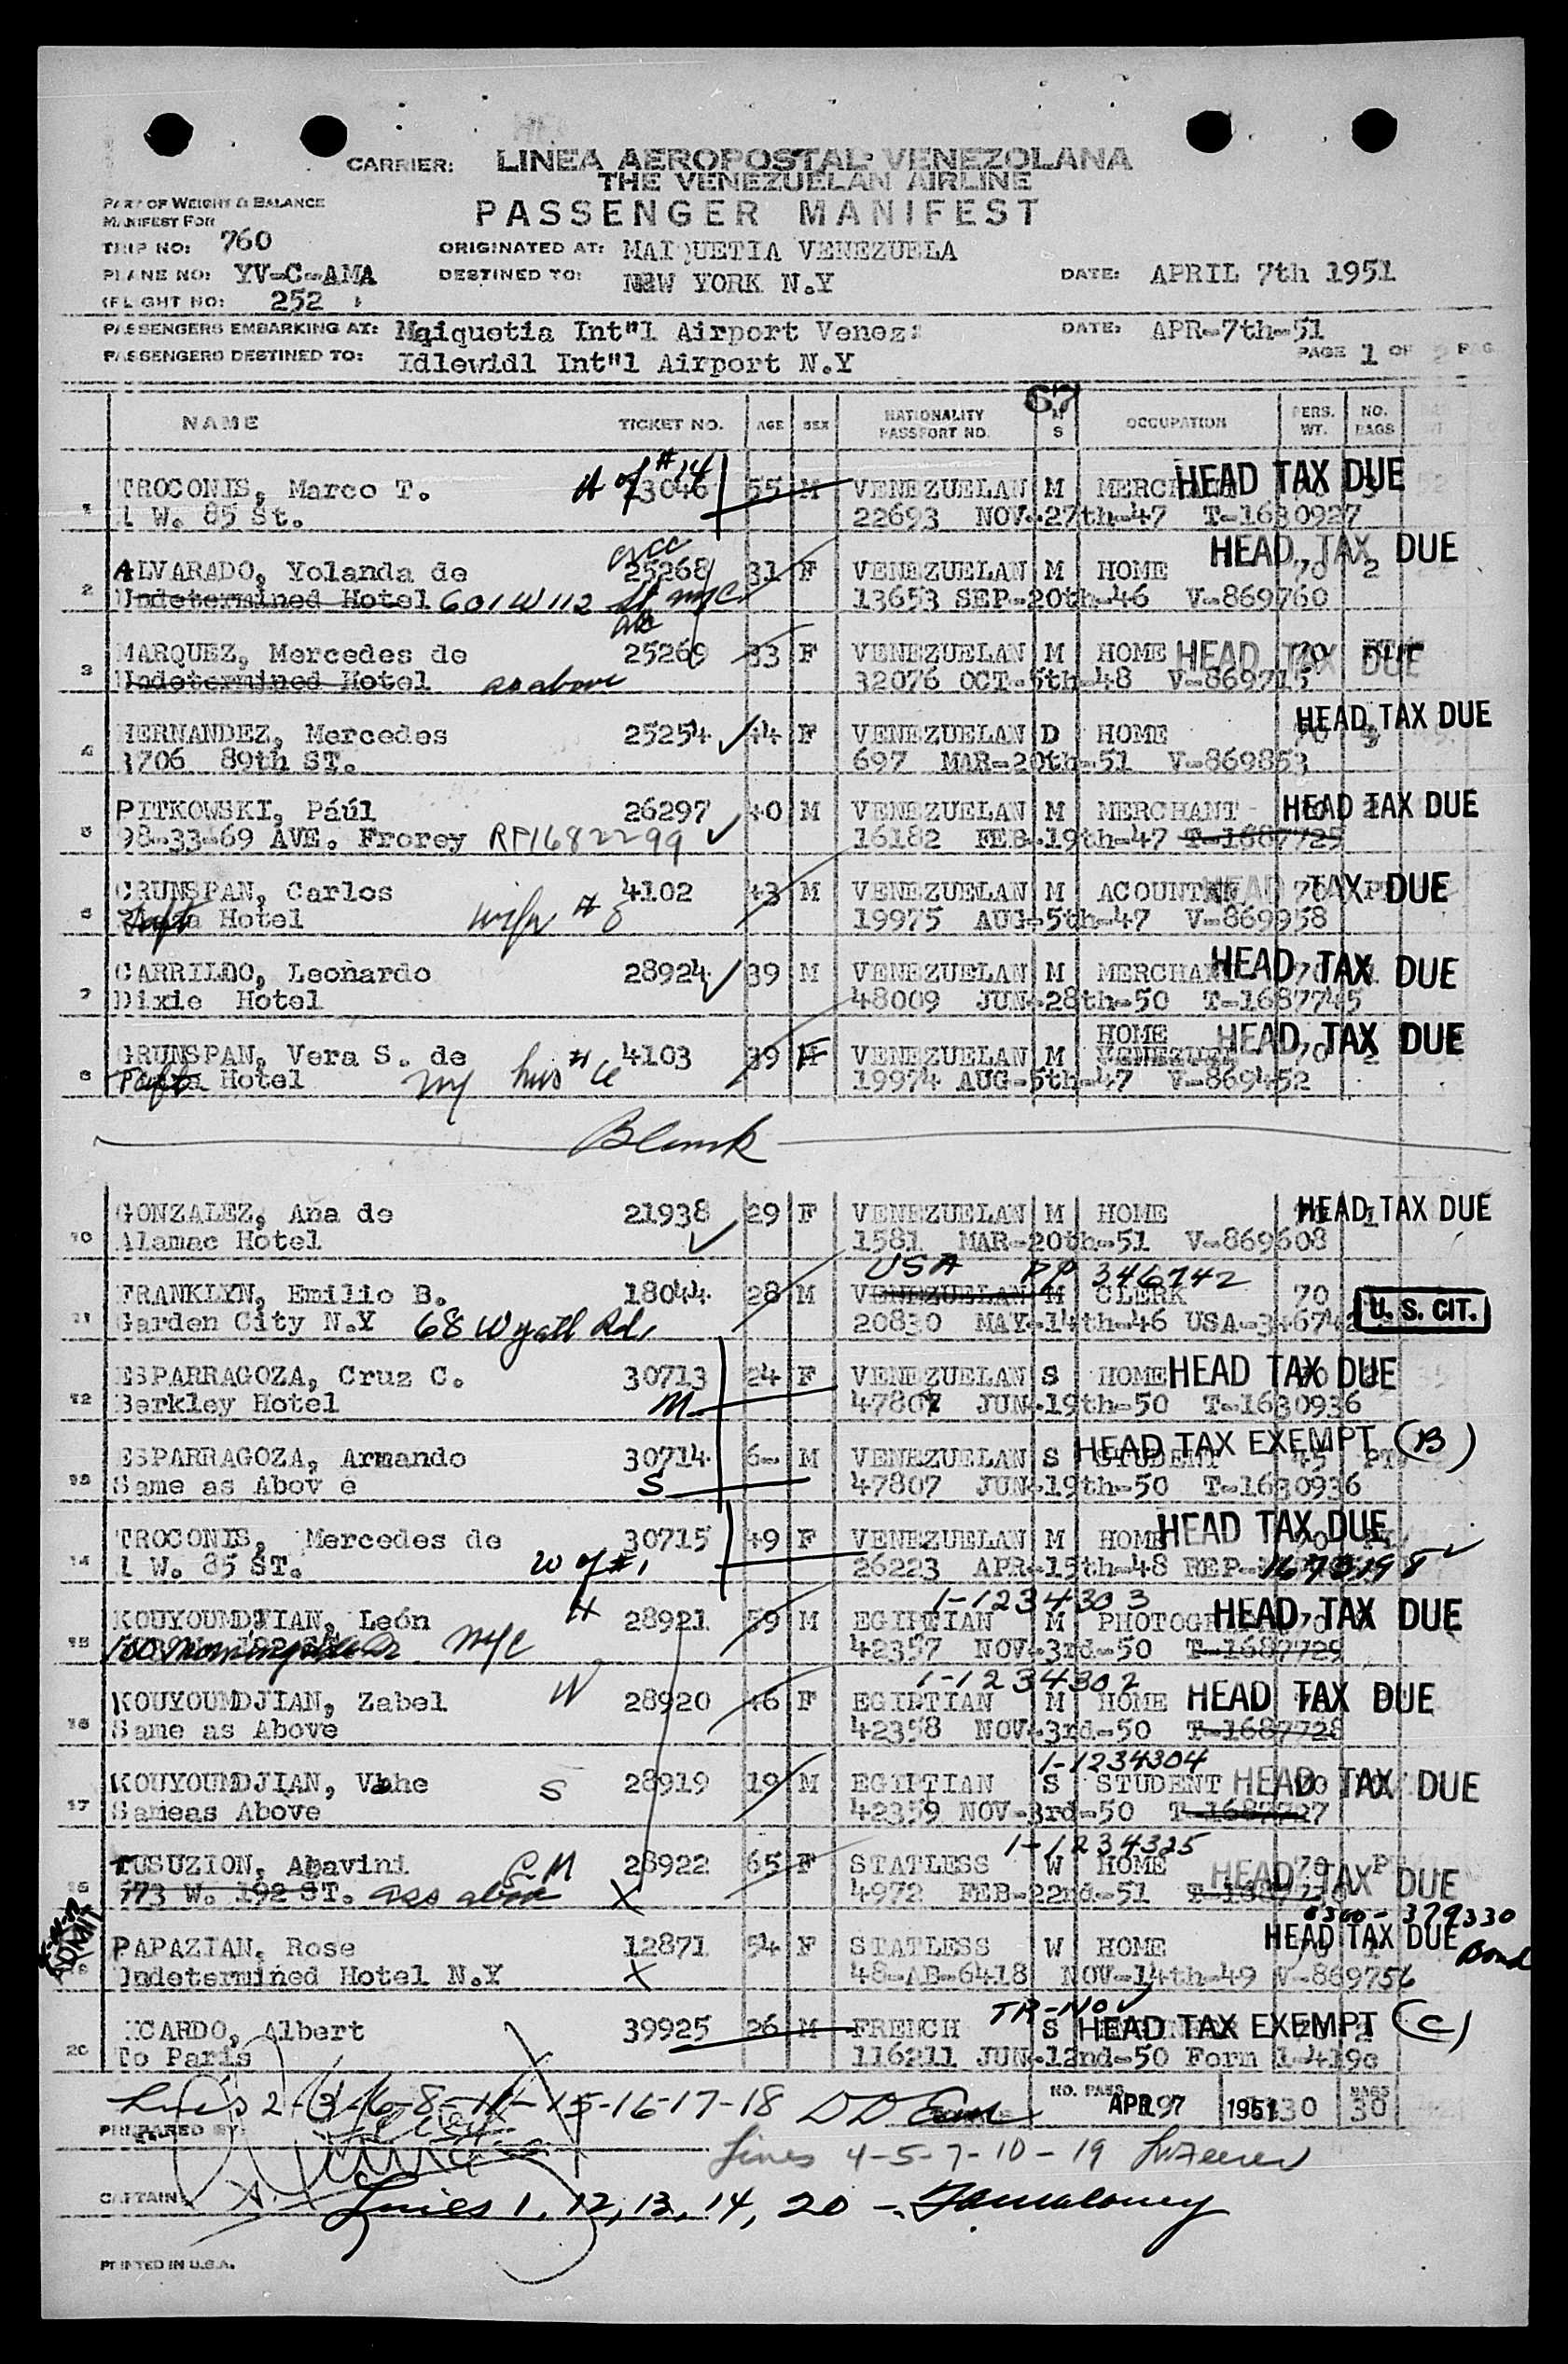 CARRIER: LINEA AEROPOSTAL VENEZOLANA
THE VENEZUELAN AIRLINE
PART OF WEIGHT & BALANCE
MANIFEST FOR
PASSENGER MANIFEST
TRIP NO: 760
ORIGINATED AT: MAIQUETIA VENEZUELA
PLANE NO: YV-C-AMA
DESTINED TO: NEW YORK N.Y
DATE: APRIL 7th 1951
(FLIGHT NO: 252 )
PASSENGERS EMBARKING AT: Maiquetia Int"l Airport Venez:
DATE: APR-7th-51
PASSENGERS DESTINED TO: Idlewidl Int"l Airport N.Y
PAGE 1 OF 2 PAG
67
NAME TICKET NO. AGE SEX NATIONALITY PASSPORT NO. M S OCCUPATION PERS. WT. NO. BAGS
H of #14
1 TROCONIS, Marco T. 73046 55 M VENEZUELAN M HEAD TAX DUE
1 W. 85 St. 22693 NOV-27th-47 T-1630927
2 ALVARADO, Yolanda de 25268 31 F VENEZUELAN M HOME 70 2 HEAD TAX DUE
Undetermined Hotel 601 W 112 St nyc 13653 SEP-20th-46 V-869760
3 MARQUEZ, Mercedes de 25269 33 F VENEZUELAN M HOME HEAD TAX DUE
Undetermined Hotel as above 32076 OCT-5th-48 V-869715
4 HERNANDEZ, Mercedes 25254 44 F VENEZUELAN D HOME HEAD TAX DUE
3706 89th ST. 697 MAR-20th-51 V-869853
5 PITKOWSKI, Páúl 26297 40 M VENEZUELAN M MERCHANT HEAD TAX DUE
98-33-69 AVE. Frorey RP1682299 16182 FEB-19th-47 T-1687725
6 GRUNSPAN, Carlos 4102 43 M VENEZUELAN M HEAD TAX DUE
Taft Hotel wife # 8 19975 AUG-5th-47 V-869958
7 CARRILDO, Leoñardo 28924 39 M VENEZUELAN M MERCHANT HEAD TAX DUE
Dixie Hotel 48009 JUN-28th-50 T-1687745
HOME
8 GRUNSPAN, Vera S. de 4103 39 F VENEZUELAN M HEAD TAX DUE
Taft Hotel hus # 6 19974 AUG-5th-47 V-869452
Blank
10 GONZALEZ, Ana de 21938 29 F VENEZUELAN M HOME HEAD TAX DUE
Alamac Hotel 1581 MAR-20th-51 V-869608
USA PP 346742
11 FRANKLYN, Emilio B. 18044 28 M VENEZUELAN M CLERK 70
Garden City N.Y 68 Wyatt Rd, 20830 MAY-14th-46 USA-346742 U. S. CIT.
12 ESPARRAGOZA, Cruz C. 30713 24 F VENEZUELAN S HOME HEAD TAX DUE
Berkley Hotel M 47807 JUN-19th-50 T-1630936
13 ESPARRAGOZA, Armando 30714 6- M VENEZUELAN S STUDENT 45 HEAD TAX EXEMPT (B)
Same as Abov e S 47807 JUN-19th-50 T-1630936
14 TROCONIS, Mercedes de 30715 49 F VENEZUELAN M HOME HEAD TAX DUE
1 W. 85 ST. W of #1 26223 APR-15th-48
1-1234303
15 KOUYOUMDJIAN, León H 28921 59 M EGIPTIAN M HEAD TAX DUE
nyc 42357 NOV-3rd-50 T-1687729
1-1234302
16 KOUYOUMDJIAN, Zabel W 28920 46 F EGIPTIAN M HOME HEAD TAX DUE
Same as Above 42358 NOV-3rd-50 T-1687728
1-1234304
17 KOUYOUMDJIAN, Vahe S 28919 19 M EGIPTIAN S STUDENT HEAD TAX DUE
Sameas Above 42359 NOV-3rd-50 T-1687727
1-1234325
18 TUSUZION, Abavini 28922 65 F STATLESS W HOME 70 HEAD TAX DUE
773 W. 192 ST. as above X 4972 FEB-22nd-51
0300-379330
ADMIT
19 PAPAZIAN, Rose 12871 54 F STATLESS W HOME HEAD TAX DUE Bond
Undetermined Hotel N.Y X 48-AB-6418 NOV-14th-49 V-869756
TR-NO
20 Albert 39925 26 M FRENCH S HEAD TAX EXEMPT (C)
To Paris 116211 JUN-12nd-50 Form 1-419c
Lines 2-3-6-8-11-15-16-17-18
NO. PASS. APR 7 1951 BAGS 30
PREPARED BY:
Lines 4-5-7-10-19
CAPTAIN:
Lines 1, 12, 13, 14, 20 -
PRINTED IN U.S.A.